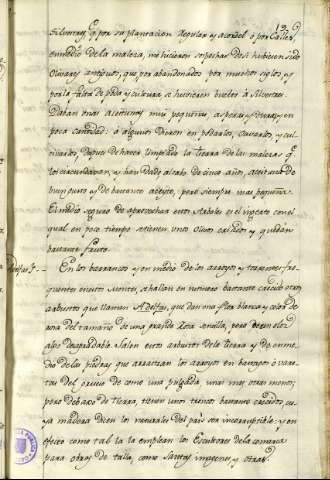 12
silvestres, q por su plantacion regular y acordel o por calles
enmedio de la maleza, me hicieron sospechar de si hubiesen sido
Olivares antiguos, que por abandonados por muchos siglos, y
por la falta de poda y cultura se huviesen buelto a silvestres.
Daban unas aceitunas muy pequeñas, asperas y y en
poca cantidad: a algunos dieron en podarlos, cavarlos, y cul-
tivarlos, despues de haver limpiado la tierra de las malezas q
los circundavan, y han dado al cabo de cinco años, aceitunas de
buen gusto y de bastante aceyte, pero siempre mas pequeñas.
El medio seguro de aprovechar estos Arboles es el ingerto con el
qual en poco tiempo se tienen unos Olivos crecidos y q den
bastante fruto.
Adelfas. En los barrancos y en medio de los arroyos y torrentes fre-
quentes en estos montes, se hallan en numero bastante crecido otros
arbustos que llaman Adelfas, que dan una flor blanca y color de
rosa del tamaño de una grande Rosa sencilla, pero de un olor
algo desagradable. Salen estos arbustos de la tierra y de enme-
dio de las piedras que arrastran los arroyos en bastagos o vare-
tas del grueso de como una pulgada unas mas otras menos;
pero debaxo de tierra, tienen unos troncos bastante crecidos, cu-
ya madera dicen los naturales del pais ser incorruptible: y en
efecto como tal la emplean los Escultores de la comarca
para obras de talla, como Santos, imagenes, y otras.